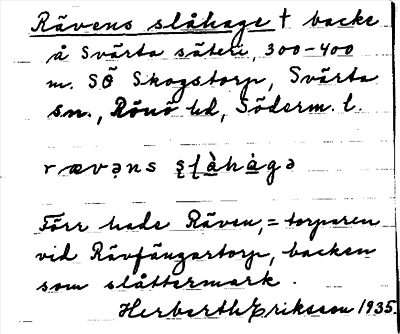 Rävens slåhage † backe
å Svärta säteri, 300-400
m. SÖ Skogstorp, Svärta
sn., Rönö hd, Söderm. l.
rævəns s̨l̨àhàgə
Förr hade Räven, = torparen
vid Rävfängartorp, backen
som slåttermark.
Herberth Eriksson 1935.